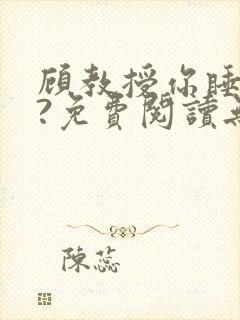 顾教授你睡
?免費閱讀
陳蕊